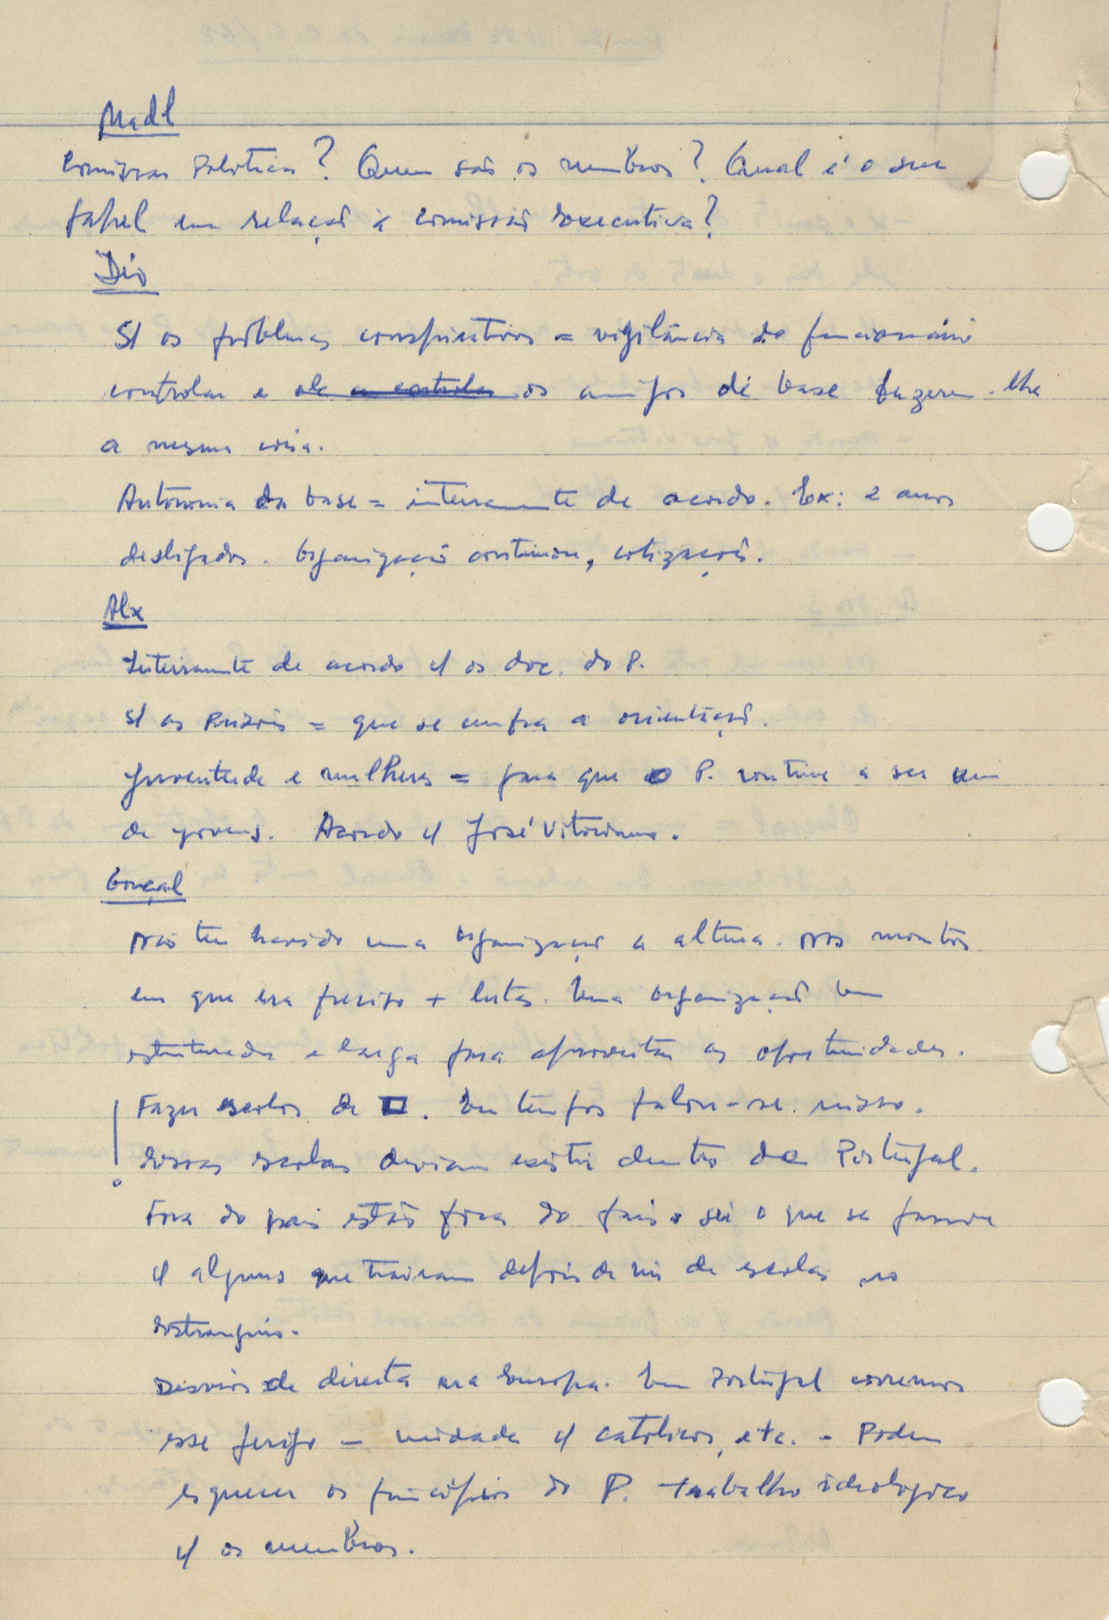 Madl
Comissão Politica? Quem são os membros? Qual é o seu
papel em relação à comissão Executiva?
Dió
S/ os problemas conspirativos = vigilância do funcionário
controlar e ele a controlar os amigos de base fazerem-lhe
a mesma coisa.
Autonomia da base = inteiramente de acordo. Ex: 2 anos
desligados. Organização continuou, cotização.
Alx
Inteiramente de acordo c/ os doc. do P.
S/ as Prisões = que se cumpra a orientação.
Juventude e mulheres = para que o P. continue a ser um
de jovens. Acordo c/ José Vitoriano.
Gonçal
Não tem havido uma organização à altura nos montos
em que era preciso + lutas. Uma organização bem
estruturada e larga para aproveitar as oportunidades.
Fazer escolas de □. Em tempos falou-se nisso.
Essas escolas deviam existir dentro de Portugal.
Fora do pais estão fora do pais e sei o que se passou
c/ alguns que trairam depois de vir de escolas no
Estrangeiro.
Desvios de direita na Europa. Em Portugal corremos
esse perigo - unidade c/ católicos, etc. - Podem
esquecer os princípios do P. trabalho ideologico
c/ os membros.